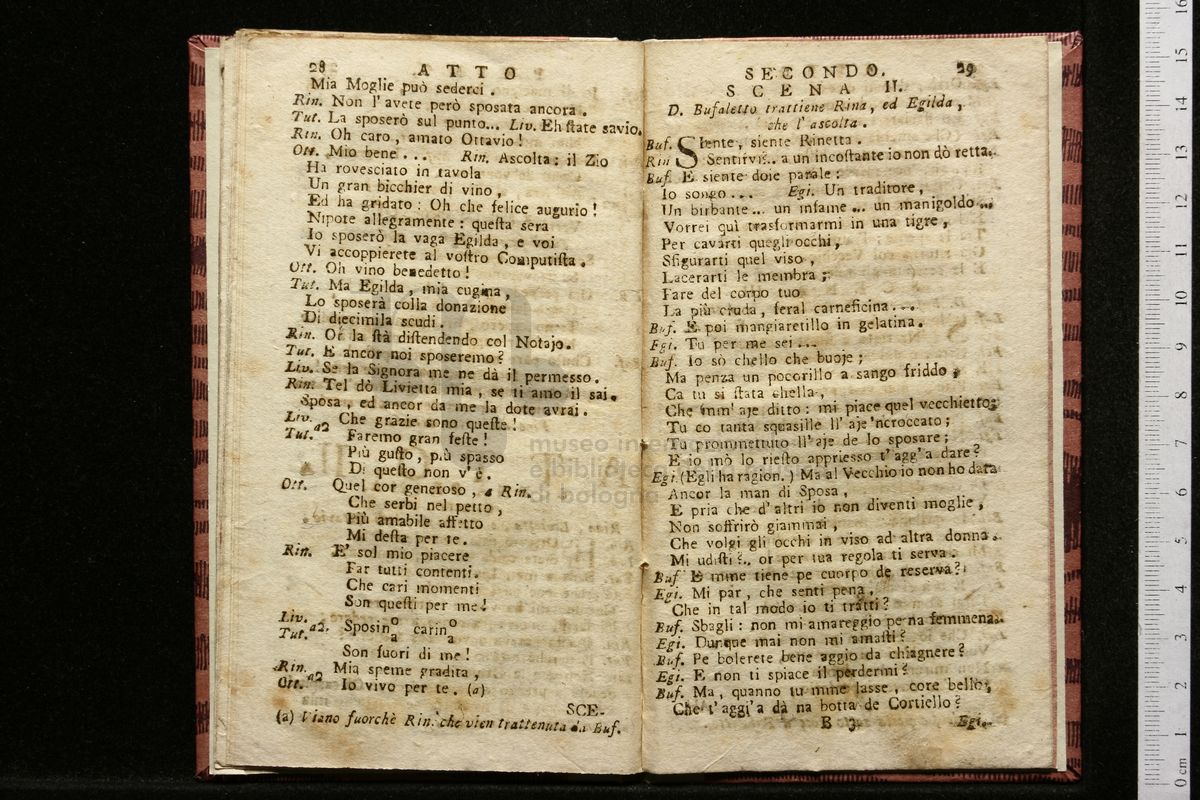 28 ATTO
Mia Moglie può sederci.
Rin. Non l'avete però sposata ancora.
Tut. La sposerò sul punto... Liv. Eh state savio.
Rin. Oh caro, amato Ottavio!
Ott. Mio bene... Rin. Ascolta: il Zio
Ha rovesciato in tavola
Un gran bicchier di vino,
Ed ha gridato: Oh che felice augurio!
Nipote allegramente: questa sera
Io sposerò la vaga Egilda, e voi
Vi accoppierete al vostro Computista.
Ott. Oh vino benedetto!
Tut. Ma Egilda, mia cugina,
Lo sposerà colla donazione
Di diecimila scudi.
Rin. Or la stà distendendo col Notajo.
Tut. E ancor noi sposeremo?
Liv. Se la Signora me ne dà il permesso.
Rin. Tel dò Livietta mia, se ti amo il sai.
Sposa, ed ancor da me la dote avrai.
Liv. a2 Che grazie sono queste!
Tut. Faremo gran feste!
Più gusto, più spasso
Di questo non v'è.
Ott. Quel cor generoso, a Rin.
Che serbi nel petto,
Più amabile affetto
Mi desta per te.
Rin. E' sol mio piacere
Far tutti contenti.
Che cari momenti
Son questi per me!
Liv. Tut. a2. Sposin o a carin o a
Son fuori di me!
Rin. a2 Mia speme gradita,
Ott. Io vivo per te. (a)
SCE-
(a) Viano fuorchè Rin. che vien trattenuta da Buf.
SECONDO. 29
SCENA II.
D. Bufaletto trattiene Rina, ed Egilda,
che l'ascolta.
Buf. Siente, siente Rinetta.
Rin Sentirvi?.. a un incostante io non dò retta.
Buf. E siente doie parale:
Io songo... Egi. Un traditore,
Un birbante... un infame... un manigoldo...
Vorrei quì trasformarmi in una tigre,
Per cavarti quegli occhi,
Sfigurarti quel viso,
Lacerarti le membra;
Fare del corpo tuo
La più cruda, feral carneficina....
Buf. E poi mangiaretillo in gelatina.
Egi. Tu per me sei...
Buf. Io sò chello che buoje;
Ma penza un pocorillo a sango friddo,
Ca tu si stata chella,
Che mm'aje ditto: mi piace quel vecchietto;
Tu co tanta squasille ll'aje 'ncroccato;
Tu prommettuto ll'aje de lo sposare;
E io mò lo riesto appriesso t'agg'a dare?
Egi. (Egli ha ragion.) Ma al Vecchio io non ho data
Ancor la man di Sposa,
E pria che d'altri io non diventi moglie,
Non soffrirò giammai,
Che volgi gli occhi in viso ad altra donna.
Mi udisti?.. or per tua regola ti serva.
Buf E mme tiene pe cuorpo de reserva?
Egi. Mi par, che senti pena,
Che in tal modo io ti tratti?
Buf. Sbagli: non mi amareggio pe na femmena.
Egi. Dunque mai non mi amasti?
Buf. Pe bolerete bene aggio da chiagnere?
Egi. E non ti spiace il perdermi?
Buf. Ma, quanno tu mme lasse, core bello,
Che t'aggi'a dà na botta de Cortiello?
B 3 Egi.